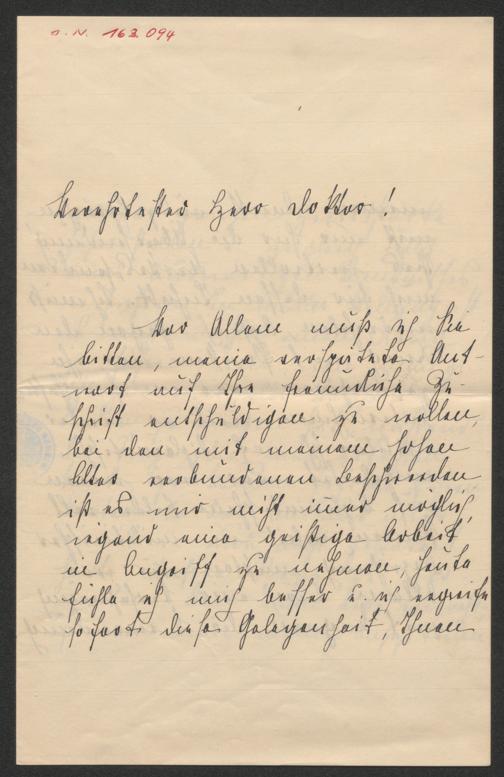 I. N. 163.094
Verehrtester Herr Doktor!
Vor Allem muß ich Sie
bitten, meine verspätete Ant-
wort auf Ihre freundliche Zu-
schrift entschuldigen zu wollen,
bei den mit meinem hohen
Alter verbundenen Beschwerden
ist es mir nicht immer möglich
irgend eine geistige Arbeit
in Angriff zu nehmen, heute
fühle ich mich besser u. ich ergreife
sofort diese Gelegenheit, Ihnen